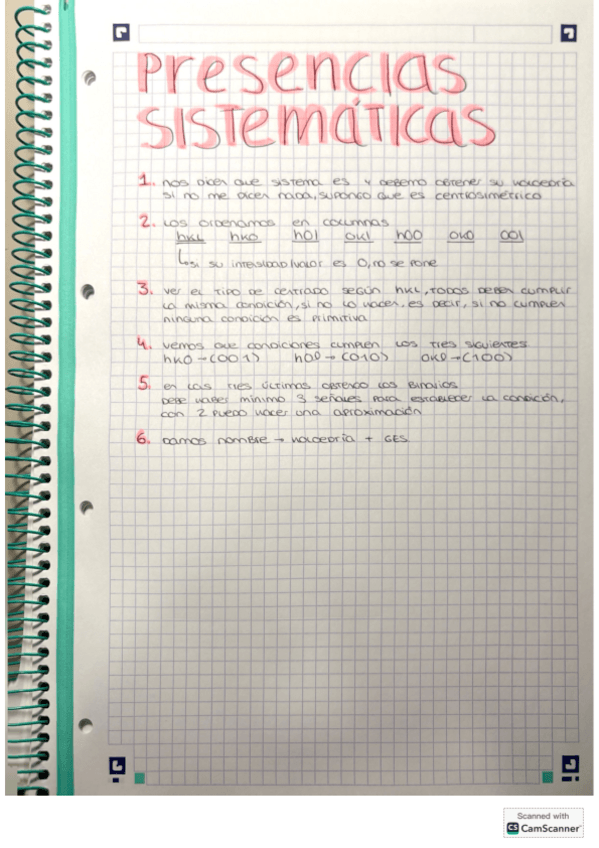 Presencias
sistemáticas
1. nos dicen que sistema es y debemo obtener su holoedría
si no me dicen nada, supongo que es centrosimétrico
2. Los ordenamos en columnas
hkl hk0 h0l 0kl h00 0k0 00l
↳ si su intensidad/valor es 0, no se pone
3. ver el tipo de centrado según hkl, todos deben cumplir
la misma condición, si no lo hacen, es decir, si no cumplen
ninguna condición es primitiva
4. vemos que condiciones cumplen los tres siguientes
hk0 → (001) h0l → (010) 0kl → (100)
5. en las tres últimas obtengo los binarios
debe haber mínimo 3 señales para establecer la condición,
con 2 puedo hacer una aproximación
6. Damos nombre → holoedría + GES
Scanned with
CS CamScanner